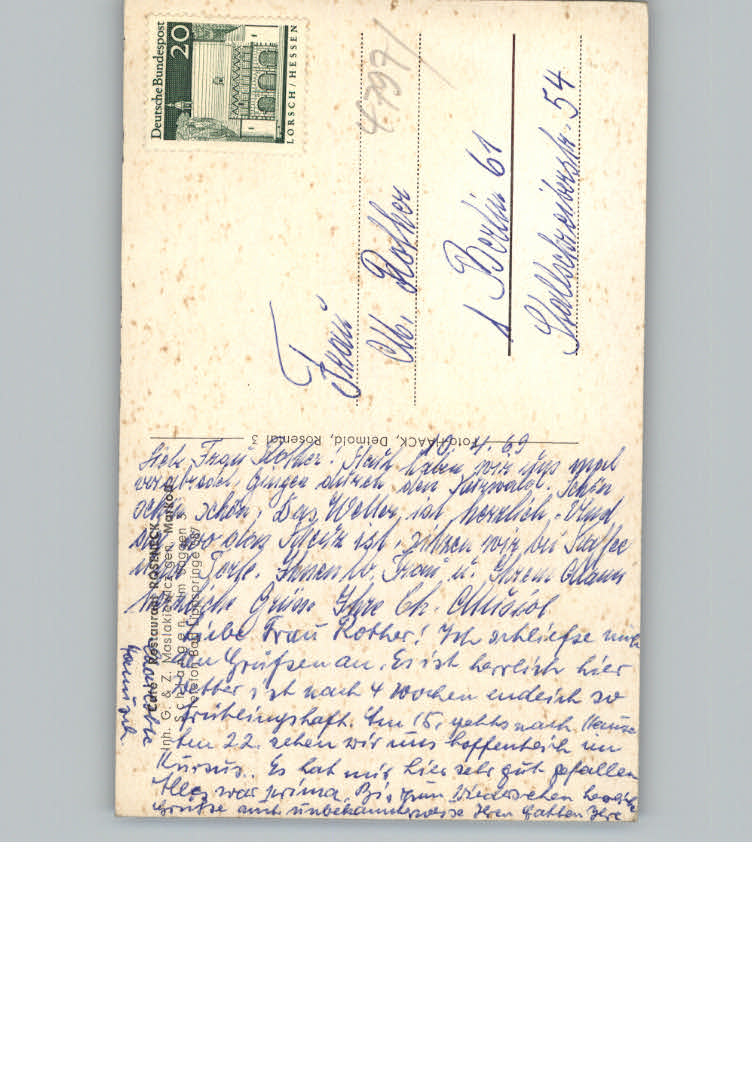 Deutsche Bundespost
20
LORSCH / HESSEN
4797/
Frau
M. Rother
1 Berlin 61
Stallschreiberstr. 54
Foto-HAACK, Detmold, Rosental 3
Café - Restaurant ROSENECK
Inh. G. & Z. Maslakiewicz gen. Markon
Schlangen, Im Sagden
Telefon Bad Lippspringe
10. 4. 69
Liebe Frau Rother! Heute haben wir uns mal
verabredet, gingen durch den Kurwald. Schön
schön. Das Wetter ist herrlich. Und
so ist, sitzen wir bei Kaffee
u. Torte. Ihnen lb. Frau u. Ihrem Mann
herzliche Grüsse Ihre Ch.
Liebe Frau Rother! Ich schließe mich
den Grüßen an. Es ist herrlich hier
Wetter ist nach 4 Wochen endlich so
frühlingshaft. Am 15. gehts nach Hause
Am 22. sehen wir uns hoffentlich im
Kursus. Es hat mir hier sehr gut gefallen
Alles war prima. Bis zum Wiedersehen herzliche
Grüße auch unbekannterweise Ihren Gatten Ihre